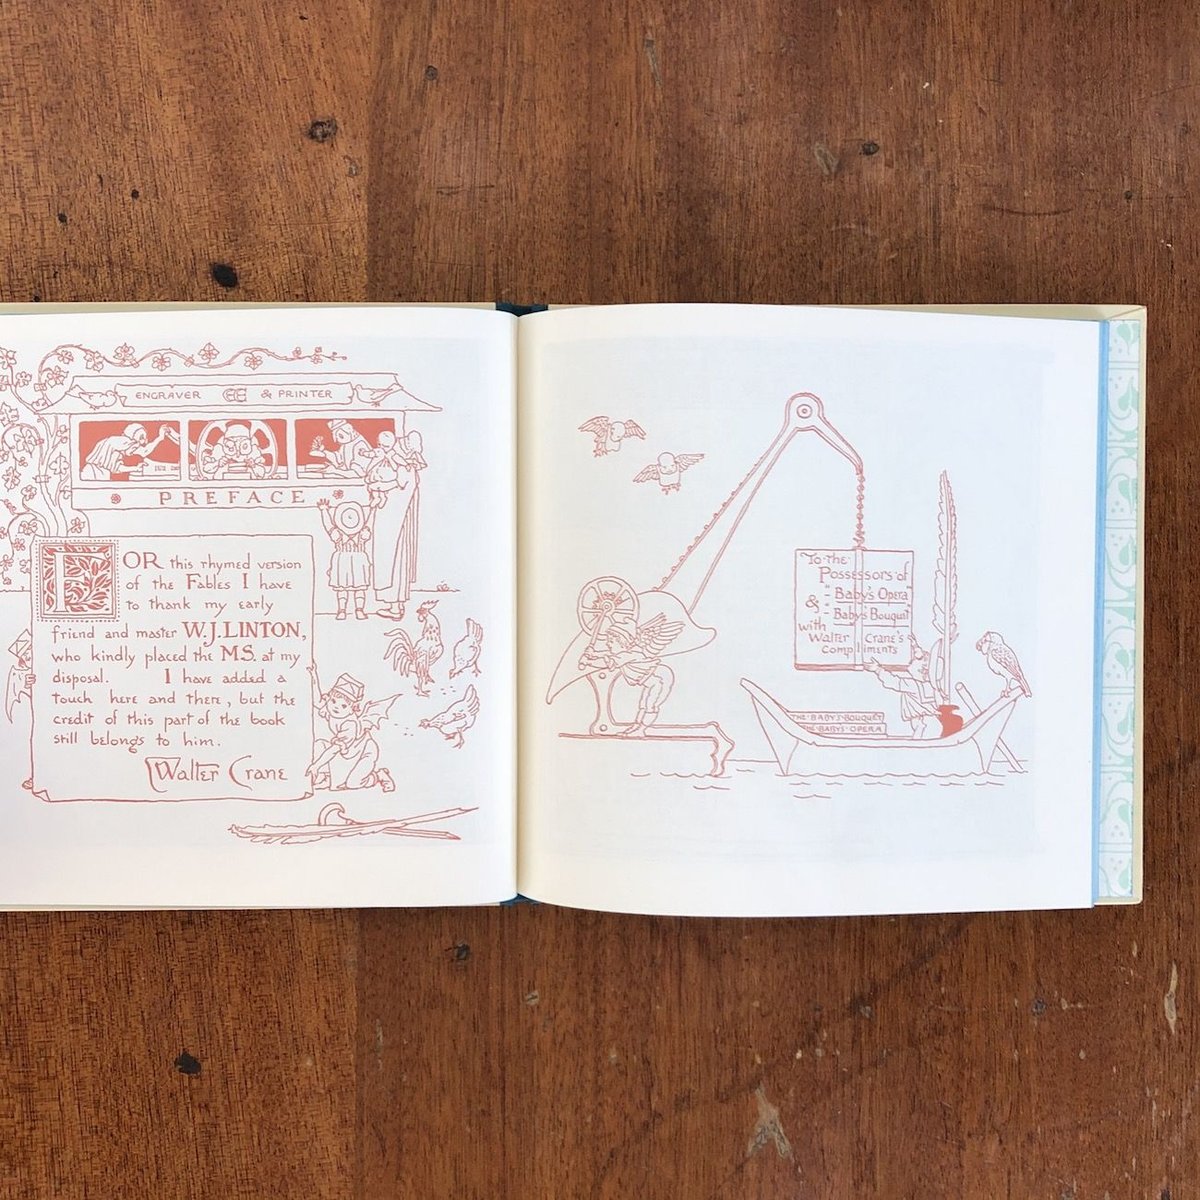 ENGRAVER & PRINTER
PREFACE
FOR this rhymed version
of the Fables I have
to thank my early
friend and master W.J.LINTON,
who kindly placed the MS. at my
disposal. I have added a
touch here and there, but the
credit of this part of the book
still belongs to him.
Walter Crane
To the
Possessors of
"Baby's Opera"
& "Baby's Bouquet"
with
Walter Crane's
compliments
THE·BABY'S·BOUQUET
THE·BABY'S·OPERA